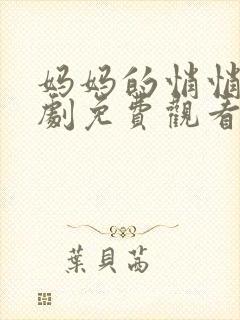 妈妈的悄悄
劇免費觀看
葉貝茜